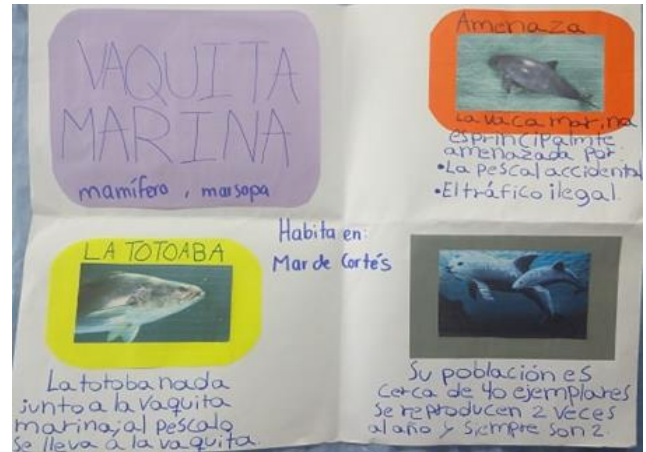 VAQUITA
MARINA
mamífero, marsopa
Amenaza
La vaca marina
esprincipalmte
amenazada por
•La pescal accidental
•El tráfico ilegal.
Habita en:
Mar de Cortés
LA TOTOABA
La totoba nada
junto a la vaquita
marina, al pescalo
se lleva a la vaquita.
Su población es
cerca de 40 ejemplares
se reproducen 2 veces
al año y siempre son 2.